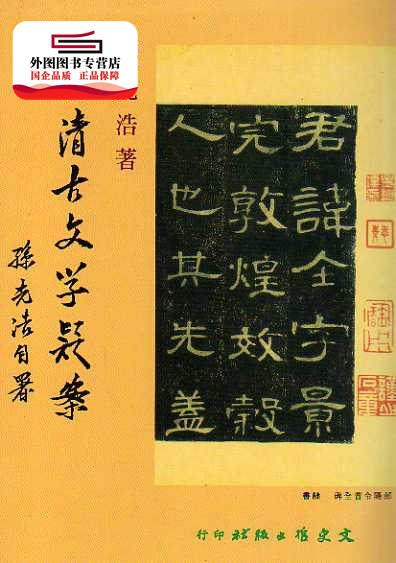 外图图书专营店
国企品质 正品保障
浩著
清古文学疑案
孫克浩自署
君諱全字景
完敦煌效穀
人也其先蓋
郃陽令曹全碑 隸書
文史哲出版社印行